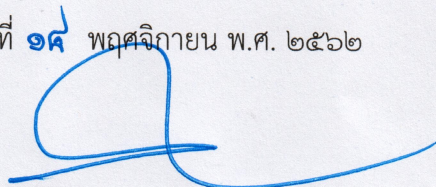 ที่ ๑๘ พฤศจิกายน พ.ศ. ๒๕๖๒